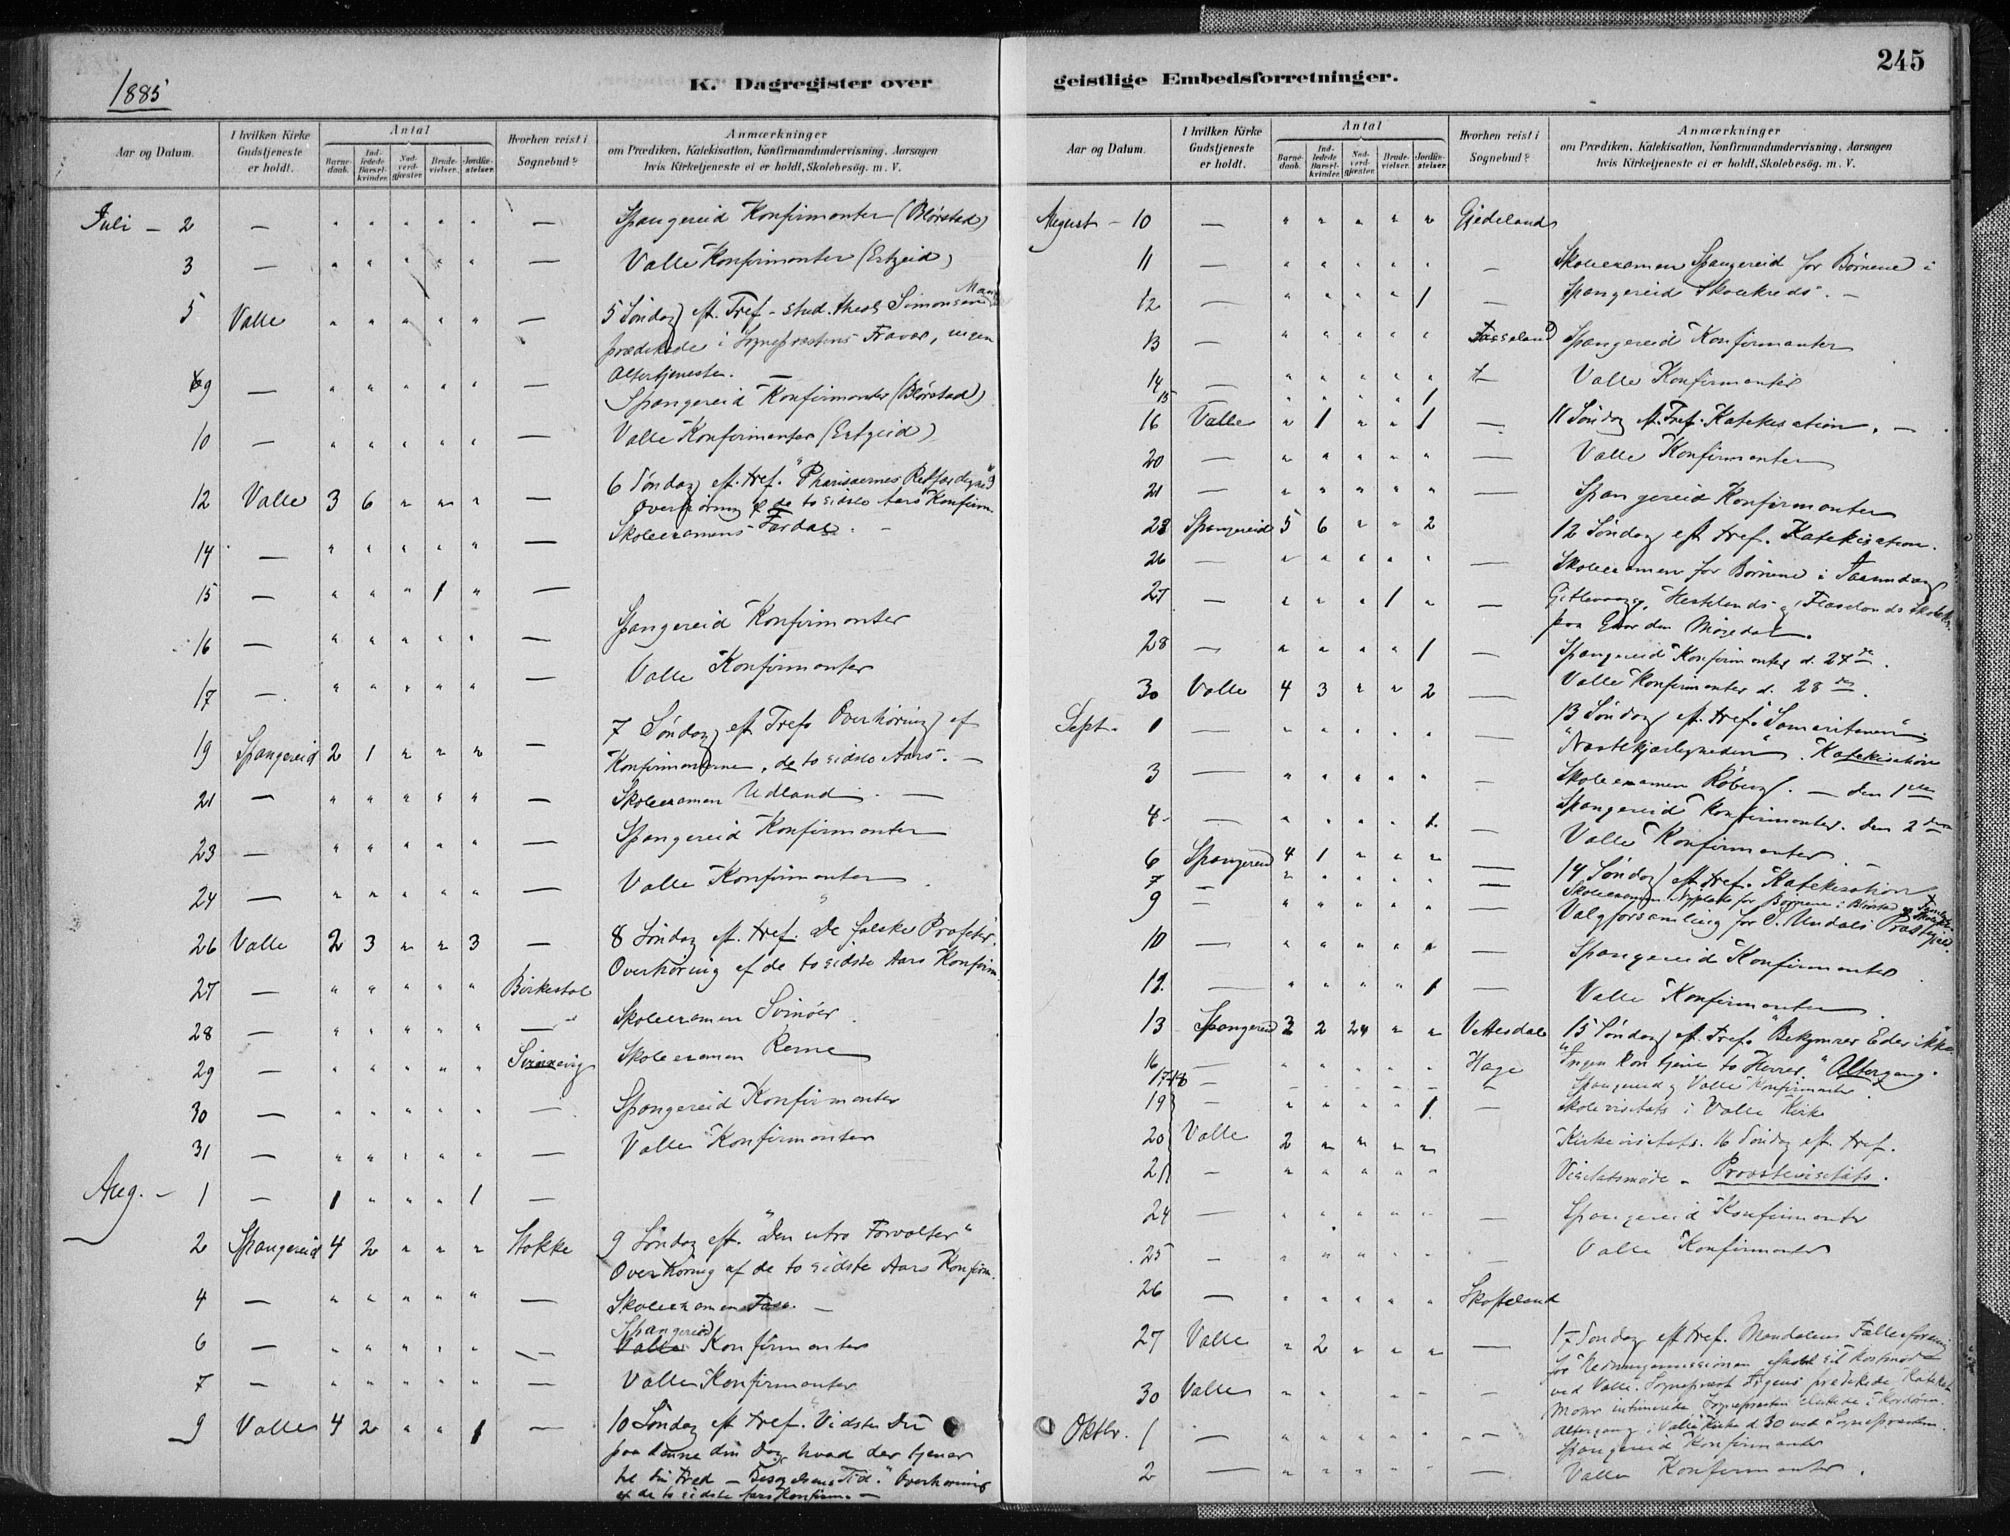 1885
K. Dagregister over
Aar og Datum.
I hvilken Kirke Gudstjeneste er holdt.
Antal
Barnedaab.
Indledede Barselkvinder.
Nadverdgjæster.
Brudevielser.
Jordfæstelser.
Hvorhen reist i Sognebud?
Anmærkninger
om Prædiken, Katekisation, Konfirmandundervisning, Aarsagen
hvis Kirketjeneste ei er holdt, Skolebesög. m. V.
Juli - 2 — " " " " " — Spangereid Konfirmanter (Blørstad)
3 — " " " " " — Valle Konfirmanter (Ertzeid)
5 Valle " " " " " — 5 Søndag eft. Tref - stud. theol. Simonsen
prædikede i Sognepræstens Fravær, ingen
Altertjeneste.
9 — " " " " " — Spangereid Konfirmanter (Blørstad)
10 — " " " " " — Valle Konfirmanter (Ertzeid)
12 Valle 3 6 " " " — 6 Søndag eft. tref. "Pharisæernes Retfærdighed"
Overhøring af de to sidste Aars Konfirm.
14 — " " " " " — Skoleexamens Fardal. —
15 — " " " 1 " —
16 — " " " " " — Spangereid Konfirmanter
17 — " " " " " — Valle Konfirmanter
19 Spangereid 2 1 " " " — 7 Søndag eft Tref. Overhøring af
Konfirmanterne, de to sidste Aars. —
21 — " " " " " — Skoleexamen Udland. —
23 — " " " " " — Spangereid Konfirmanter
24 — " " " " " — Valle Konfirmanter
26 Valle 2 3 " " 3 — 8 Søndag eft. tref. "De falske Profeter.
Overhøring af de to sidste Aars Konfirm
27 — " " " " " Birkestol
28 — " " " " " — Skoleexamen Svinöer.
29 — " " " " " Skoleexamen Rerne
30 — " " " " " — Spangereid Konfirmanter
31 — " " " " " — Valle Konfirmanter
Aug. - 1 — 1 " " " 1 —
2 Spangereid 4 2 " " " Stokke 9 Søndag eft. "Den utro Forvalter"
Overhöring af de to sidste Aars Konfirm.
4 — " " " " " — Skoleexamen —
Spangereid
6 — " " " " " — Valle Konfirmanter
7 — " " " " " Valle Konfirmanter
9 Valle 4 2 " " 1 — 10 Søndag eft tref. "Vidste Du
paa denne din Dag, hvad der tjener
til din Fred — Besøgelsens Tid." Overhøring
af de to sidste Aars Konfirm. —
245
geistlige Embedsforretninger.
Aar og Datum.
I hvilken Kirke Gudstjeneste er holdt.
Antal
Barnedaab.
Indledede Barselkvinder.
Nadverdgjæster.
Brudevielser.
Jordfæstelser.
Hvorhen reist i Sognebud?
Anmærkninger
om Prædiken, Katekisation, Konfirmandundervisning, Aarsagen
hvis Kirketjeneste ei er holdt, Skolebesög. m. V.
August - 10 — " " " " " Gjedeland
11 — " " " " " — Skoleexamen Spangereid for Børnene i
12 — " " " " 1 — Spangereid Skolekreds. —
13 — " " " " " Spangereid Konfirmanter
14 — " " " " " Valle Konfirmanter
15 " " " " 1
16 Valle " 1 " " 1 — 11 Søndag eft. Tref. Katekisation. —
20 — " " " " " — Valle Konfirmanter
21 — " " " " " — Spangereid Konfirmanter
23 Spangereid 5 6 " " 2 12 Søndag eft tref. Katekisation.
26 — " " " " " — Skoleexamen for Børnene i
27 — " " " 1 " —
paa Gaarden Møsedal.
28 — " " " " 1 — Spangereid Konfirmanter d. 27de.
30 Valle 4 3 " " 2 — Valle Konfirmanter d. 28de.
Sept. 1 — " " " " " — 13 Søndag eft. tref. "Samaritanen"
"Næstekjærligheden". Katekisation
3 — " " " " " — Skoleexamen Røberg. — den 1ste
4 — " " " " 1 — Spangereid Konfirmanter. den 2den
Valle Konfirmanter. —
6 Spangereid 4 1 " " " — 14 Søndag eft tref. Katekisation
7 — " " " " " — Skoleexamen for Børnene i Blørstad
9 — " " " " " — Valgforsamling for S. Undals Præstegjeld
10 — " " " " " — Spangereid Konfirmanter
12 — " " " " 1 — Valle Konfirmanter
13 Spangereid 3 2 24 " " Vettesdal 15 Søndag eft. Tref. "Bekymrer Eder ikke"
16 — Hage "Ingen kan tjene to Herrer." Altergang.
17-18 — " " " " " — Spangereid og Valle Konfirmanter
19 — " " " " 1 — Skolevisitats i Valle Kirke
20 Valle 2 " " " " Kirkevisitats. 16 Søndag eft. tref.
21 — " " " " " Visitatsmøde - Provstevisitats.
24 — " " " " " — Spangereid Konfirmanter
25 — " " " " " — Valle Konfirmanter
26 — " " " " " Skofteland
27 Valle " 2 " " " — 17 Søndag eft tref. Mandalens Fællesforening
for Hedningemissionen
ved Valle. Sognepræst prædikede Kateket
30 Valle " " " " " — Mohr Sognepræsten i Kordøren.
Altergang i Valle Kirke d. 30 ved Sognepræsten.
Oktbr. 1 — " " " " " — Spangereid Konfirmanter
2 — " " " " " — Valle Konfirmanter.